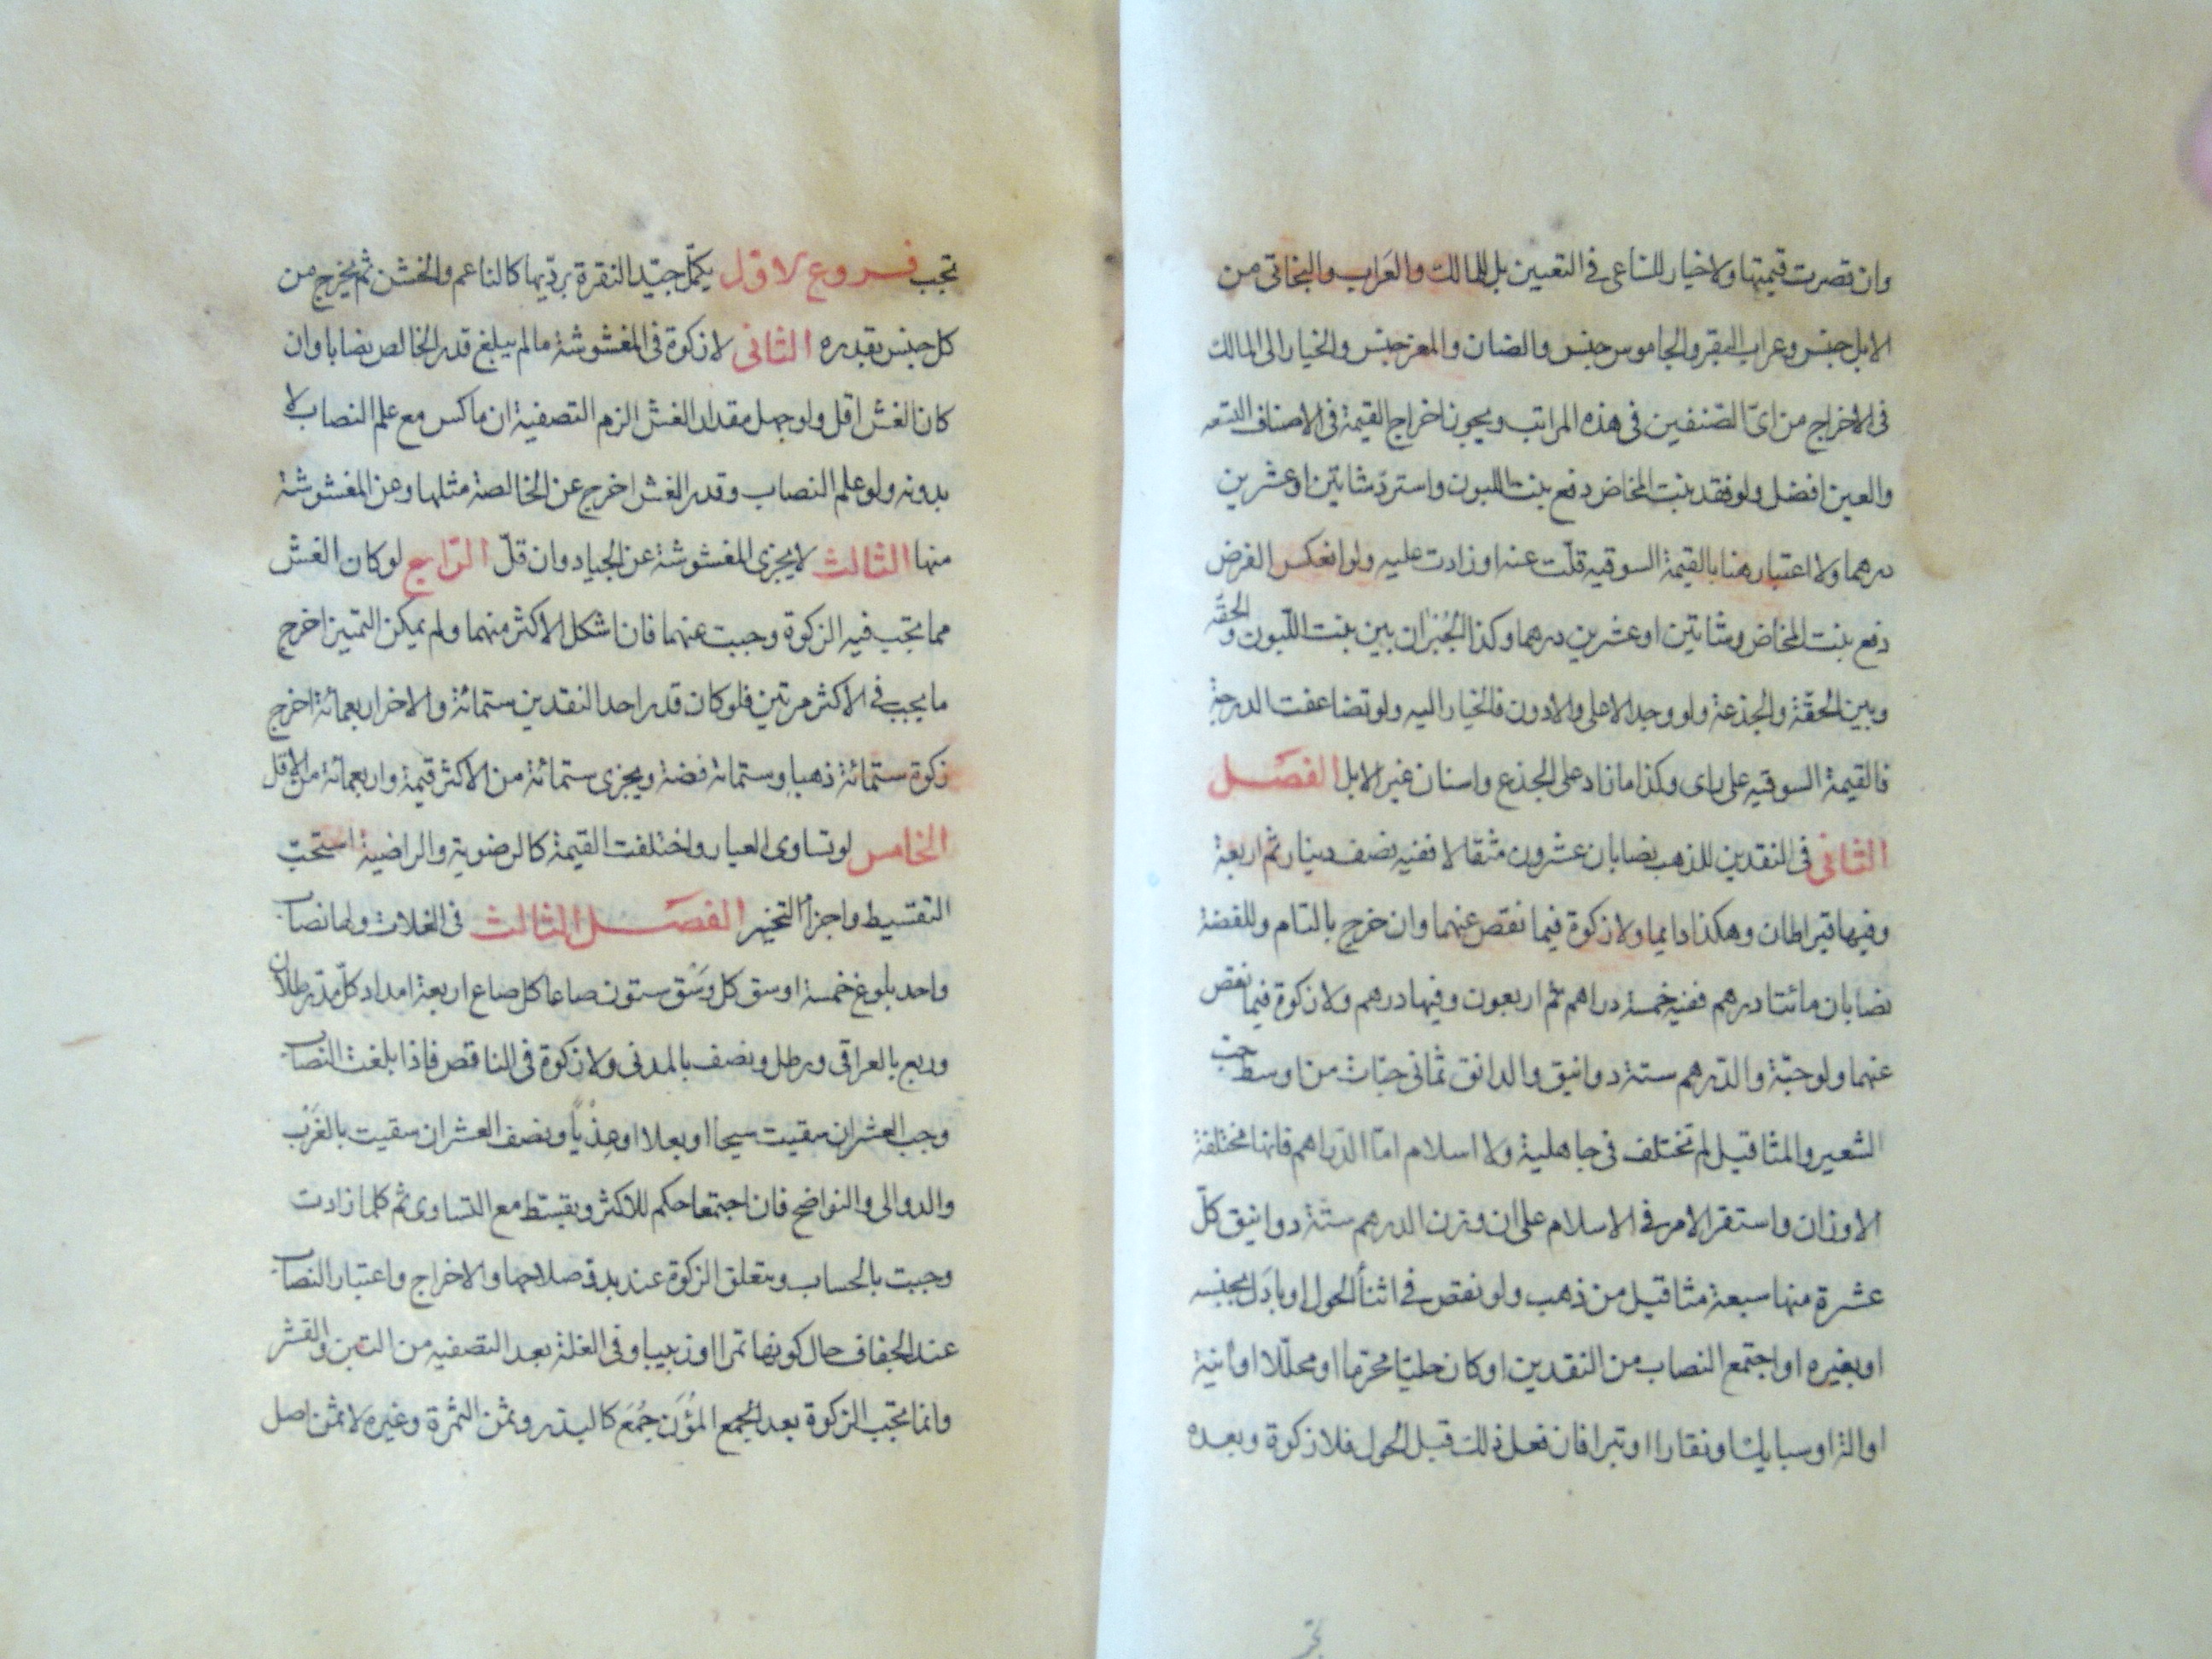 وان قصرت قيمتها ولا خيار للساعى فى التعيين بل للمالك والعراب والبخاتى من
الابل جنس وعراب البقر والجاموس جنس والضان والمعز جنس والخيار الى المالك
فى الاخراج من اىّ الصّنفين فى هذه المراتب ويجوز اخراج القيمة فى الاصناف التسعه
والعين افضل ولو فقد بنت المخاض دفع بنت اللبون واستردّ شاتين او عشرين
درهما ولا اعتبار هنا بالقيمة السوقيه قلّت عنه او زادت عليه ولو انعكس الفرض
دفع بنت المخاض وشاتين او عشرين درهما وكذا الجُبران بين بنت اللّبون والحقّه
وبين الحقّة والجذعة ولو وجد الاعلى والادون فالخيار اليه ولو تضاعفت الدرجة
فالقيمة السوقيه على راى وكذا ما زاد على الجذع واسنان غير الابل الفصل
الثانى فى النقدين للذهب نصابان عشرون مثقالا ففيه نصف دينار ثم اربعة
وفيها قيراطان وهكذا دايما ولا زكوة فيما نقص عنهما وان خرج بالتام وللفضة
نصابان مائتا درهم ففيه خمسة دراهم ثم اربعون وفيها درهم ولا زكوة فيما نقص
عنهما ولو حبّة والدّرهم ستة دوانيق والدانق ثمانى حبّات من اوسط حبّ
الشعير والمثاقيل لم تختلف فى جاهلية ولا اسلام امّا الدّراهم فانها مختلفة
الاوزان واستقر الامر فى الاسلام على ان وزن الدرهم ستّة دوانيق كلّ
عشرة منها سبعة مثاقيل من ذهب ولو نقص فى اثنأ الحول او بادَل بجنسه
او بغيره او اجتمع النصاب من النقدين او كان حليّا محرّما او محلّلا او آنية
او الة او سبايك او نقارا او تبرا فان فعل ذلك قبل الحول فلا زكوة وبعده
تجب
تجب فروع الاوّل يكمّل جيّد النقرة برديّها كالناعم والخشن ثم يخرج من
كل جنس بقدره الثانى لا زكوة فى المغشوشة ما لم يبلغ قدر الخالص نصابا وان
كان الغش اقل ولو جهل مقدار الغش الزم التصفية ان ماكس مع علم النصاب لا
بدونه ولو علم النصاب وقدر الغش اخرج عن الخالصة مثلها وعن المغشوشة
منها الثالث لا يجزى المغشوشة عن الجياد وان قلّ الرّابع لو كان الغش
مما تجب فيه الزكوة وجبت عنهما فان اشكل الاكثر منهما ولم يمكن التميز اخرج
ما يجب فى الاكثر مرتين فلو كان قدر احد النقدين ستمائة والاخر اربعمائة اخرج
زكوة ستمائة ذهبا وستمائة فضة ويجزى ستمائة من الاكثر قيمة واربعمائة من الاقل
الخامس لو تساوى العيار واختلفت القيمة كالرضوية والراضية استحبّ
التقسيط واجزأ التخيير الفصل الثالث فى الغلات ولها نصاب
واحد بلوغ خمسة اوسق كل وَسْق ستون صاعا كل صاع اربعة امداد كلّ مدّ رطلان
وربع بالعراقى ورطل ونصف بالمدنى ولا زكوة فى الناقص فاذا بلغت النصاب
وجب العشر ان سقيت سيحا او بعلا او عِذْيًا ونصف العشر ان سقيت بالغَرْب
والدوالى والنواضح فان اجتمعا حكم للاكثر ويقسّط مع التساوى ثم كلما زادت
وجبت بالحساب ويتعلق الزكوة عند بدوّ صلاحها والاخراج واعتبار النصاب
عند الجفاف حال كونها تمرا او زبيبا وفى الغلة بعد التصفيه من التبن والقشر
وانما تجب الزكوة بعد الجمع المؤَن جُمَع كالبذر وثمن الثمرة وغيره لا ثمن اصل